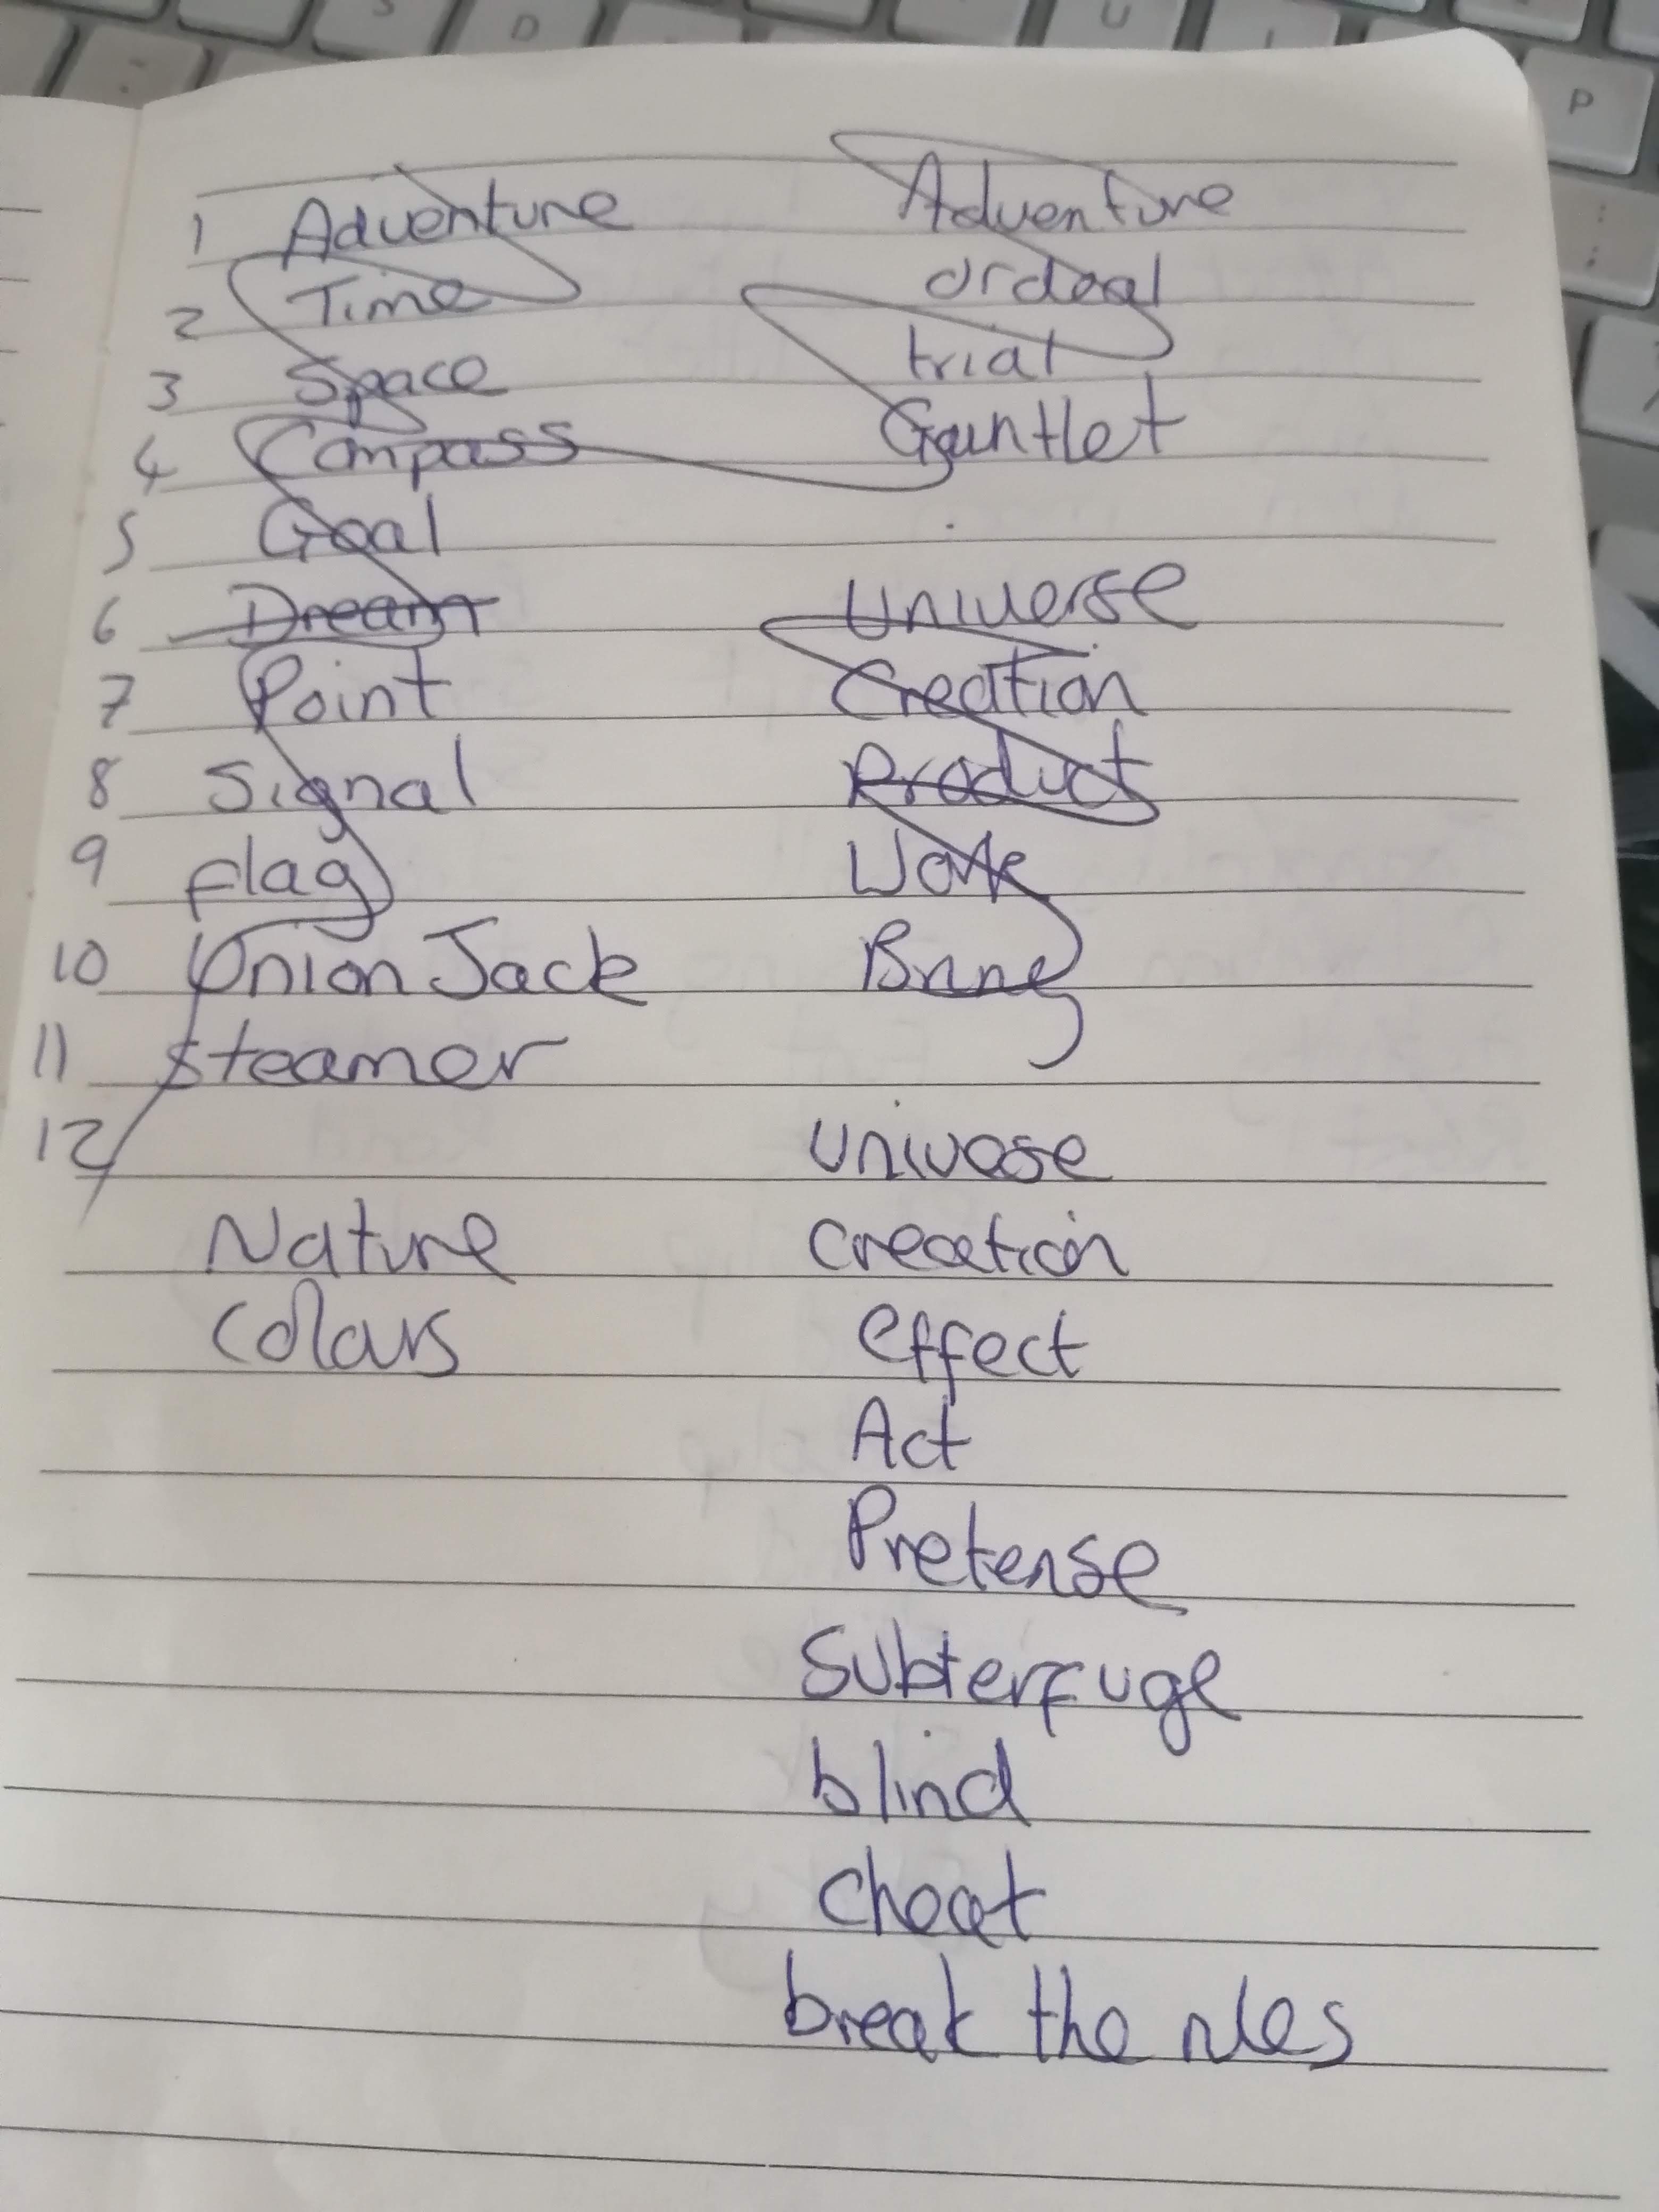 1 Adventure
2 Time
3 Space
4 Compass
5 Goal
6 Dream
7 Point
8 Signal
9 flag
10 Union Jack
11 Steamer
12
Nature
Colours
Adventure
ordeal
trial
Gauntlet
Universe
Creation
Product
Work
Bring
Universe
creation
effect
Act
Pretense
Subterfuge
blind
cheat
break the rules
P
U
D
S